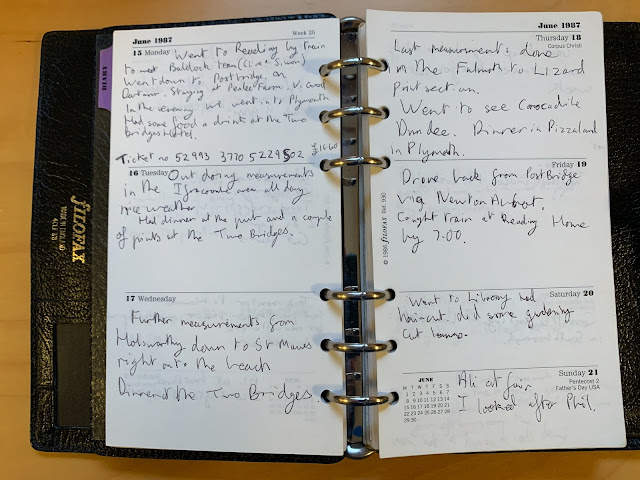 DIARY
FILOFAX
June 1987
Week 25
15 Monday Went to Reading by train
to meet Baldock team (Clive & Simon)
Went down to Postbridge, on
Dartmoor. Staying at Farm. V. Good
In the evening we went into Plymouth
Had some food & drink at the Two
Bridges Hotel.
Ticket no 52993 3770 5229502 £16.60
16 Tuesday Out doing measurements
in the Ilfracombe area all day
nice weather
Had dinner at the pub and a couple
of pints at the Two Bridges.
17 Wednesday
Further measurements from
Holsworthy down to St Mawes
right onto the beach
Dinner at the Two Bridges.
June 1987
Thursday 18
Corpus Christi
Last measurements done
in the Falmouth to Lizard
Point section.
Went to see Crocodile
Dundee. Dinner in Pizzaland
in Plymouth.
Friday 19
Drove back from Postbridge
via Newton Abbot.
Caught train at Reading Home
by 7.00.
© 1986 FILOFAX
Saturday 20
Went to Library had
haircut. did some gardening
Cut
Sunday 21
Pentecost 2
Father's Day USA
JUNE
M T W T F S S
1 2 3 4 5 6 7
8 9 10 11 12 13 14
15 16 17 18 19 20 21
22 23 24 25 26 27 28
29 30
Ali at fair
I looked after Phil.